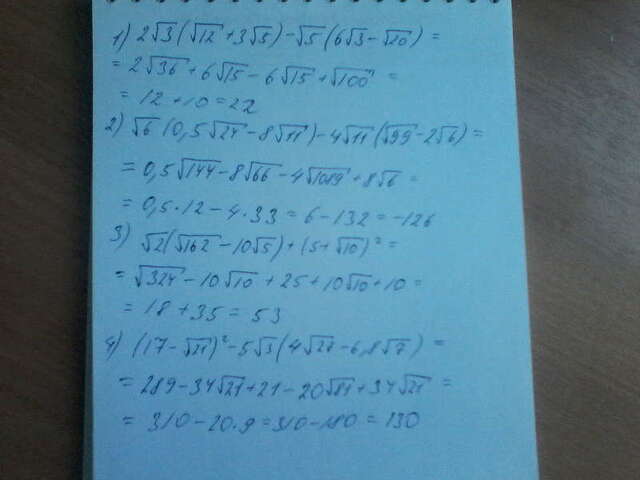 1) 2√3(√12+3√5)-√5(6√3-√20) =
= 2√36+6√15-6√15+√100 =
= 12+10=22
2) √6(0,5√24-8√11)-4√11(√99-2√6)=
= 0,5√144-8√66-4√1089+8√6 =
= 0,5·12-4·33=6-132=-126
3) √2(√162-10√5)+(5+√10)²=
= √324-10√10+25+10√10+10=
= 18+35=53
4) (17-√21)²-5√3(4√27-6,8√7) =
= 289-34√21+21-20√81+34√21 =
= 310-20·9=310-180=130